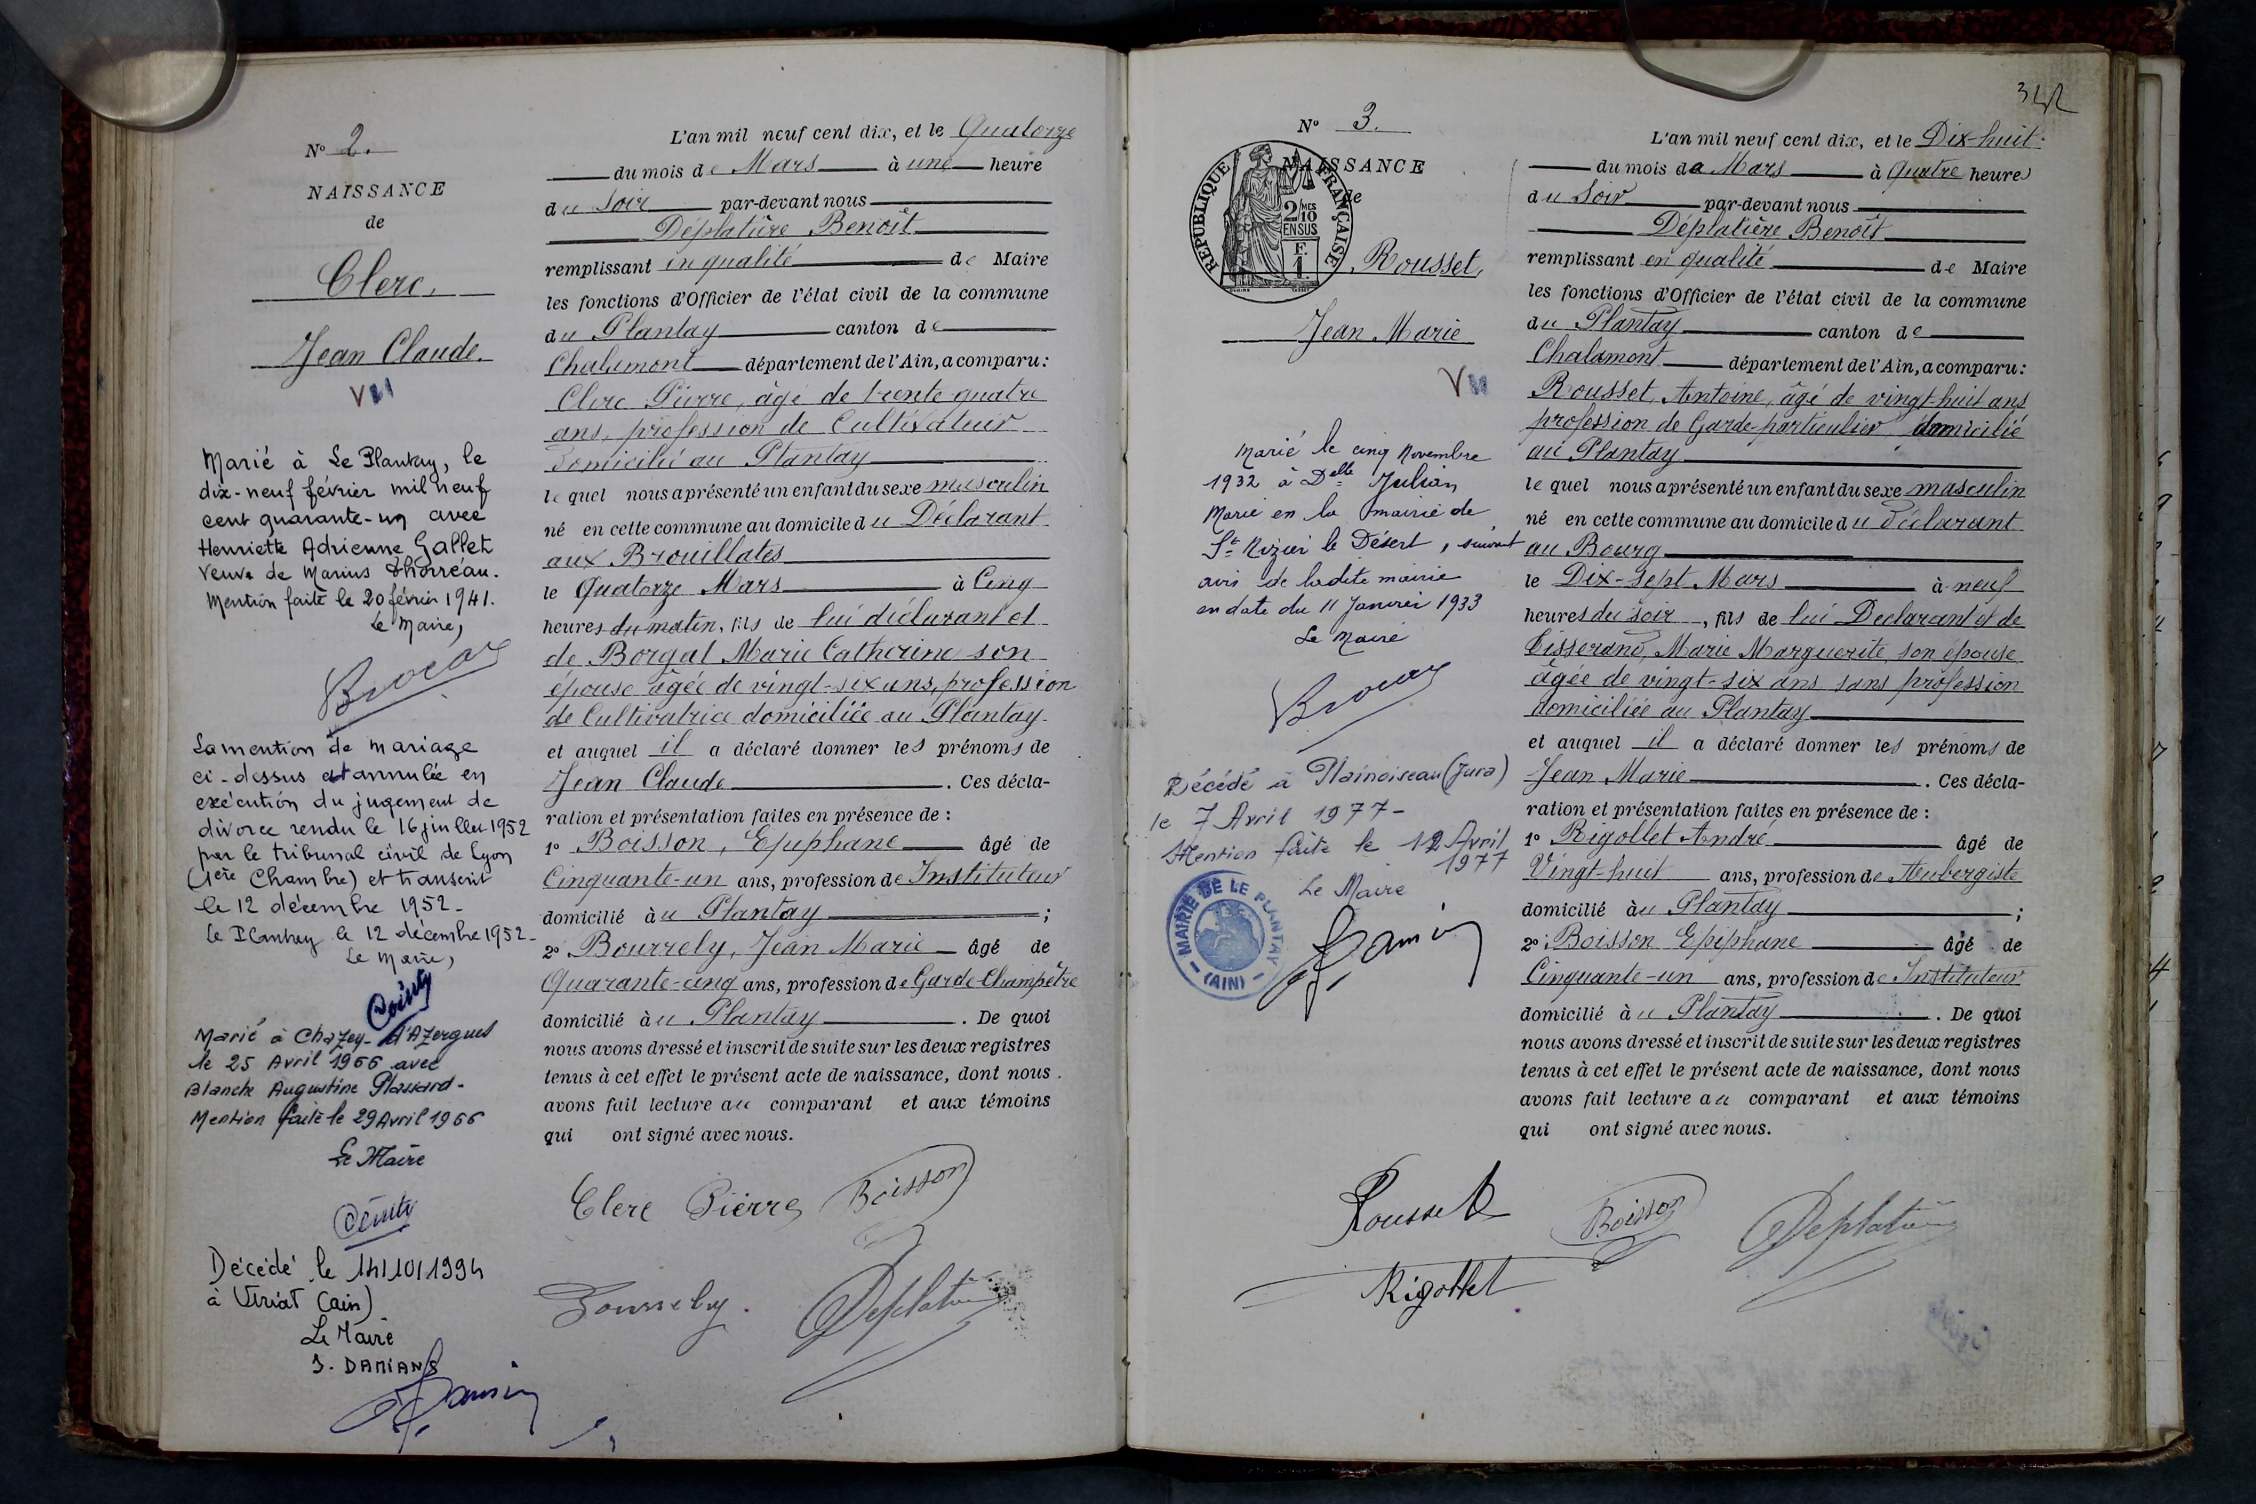 N° 2.
NAISSANCE
de
Clerc,
Jean Claude.
VU
Marié à Le Plantay, le
dix-neuf février mil neuf
cent quarante-un avec
Henriette Adrienne Gallet
Veuve de Marius Thorreau.
Mention faite le 20 février 1941.
Le Maire,
Brocard
La mention de mariage
ci-dessus est annulée en
exécution du jugement de
divorce rendu le 16 juillet 1952
par le tribunal civil de Lyon
(1ère Chambre) et transcrit
le 12 décembre 1952_
Le Plantay le 12 décembre 1952_
Le Maire,
Marié à Chazey-d'Azergues
le 25 Avril 1966 avec
Blanche Augustine Plassard-
Mention faite le 29 Avril 1966
Le Maire
Décédé le 14/10/1994
à Viriat (ain)
Le Maire
J. DAMIANS
L'an mil neuf cent dix, et le Quatorze
du mois de Mars à une heure
du Soir par-devant nous
Déplatière Benoît
remplissant en qualité de Maire
les fonctions d'Officier de l'état civil de la commune
du Plantay canton de
Chalamont département de l'Ain, a comparu :
Clerc Pierre, âgé de trente quatre
ans, profession de Cultivateur
domicilié au Plantay
le quel nous a présenté un enfant du sexe masculin
né en cette commune au domicile du Déclarant
aux Brouillates
le Quatorze Mars à Cinq
heures du matin, fils de lui déclarant et
de Borgat Marie Catherine son
épouse âgée de vingt-six ans, profession
de Cultivatrice domiciliée au Plantay.
et auquel il a déclaré donner les prénoms de
Jean Claude . Ces décla-
ration et présentation faites en présence de :
1° Boisson, Epiphane âgé de
Cinquante-un ans, profession de Instituteur
domicilié au Plantay ;
2° Bourrely, Jean Marie âgé de
Quarante-cinq ans, profession de Garde-Champêtre
domicilié au Plantay . De quoi
nous avons dressé et inscrit de suite sur les deux registres
tenus à cet effet le présent acte de naissance, dont nous
avons fait lecture au comparant et aux témoins
qui ont signé avec nous.
Clerc Pierre Boisson
Bourrely. Déplatière
342
N° 3.
NAISSANCE
de
RÉPUBLIQUE FRANÇAISE
2/10 MES
EN SUS
F.
1.
Rousset,
Jean Marie
VU
Marié le cinq Novembre
1932 à Delle Julian
Marie en la mairie de
St Nizier le Désert, suivant
avis de ladite mairie
en date du 11 Janvier 1933
Le Maire
Brocard
Décédé à Plainoiseau (Jura)
le 7 Avril 1977-
Mention faite le 12 Avril
1977
Le Maire
MAIRIE DE LE PLANTAY
(AIN)
L'an mil neuf cent dix, et le Dix-huit
du mois de Mars à Quatre heures
du Soir par-devant nous
Déplatière Benoît
remplissant en qualité de Maire
les fonctions d'Officier de l'état civil de la commune
du Plantay canton de
Chalamont département de l'Ain, a comparu :
Rousset, Antoine, âgé de vingt-huit ans
profession de Garde-particulier, domicilié
au Plantay
le quel nous a présenté un enfant du sexe masculin
né en cette commune au domicile du déclarant
au Bourg
le Dix-sept Mars à neuf
heures du soir, fils de lui Déclarant et de
Tisserand, Marie Marguerite, son épouse
âgée de vingt-six ans sans profession
domiciliée au Plantay
et auquel il a déclaré donner les prénoms de
Jean Marie . Ces décla-
ration et présentation faites en présence de :
1° Rigollet André âgé de
Vingt-huit ans, profession de Aubergiste
domicilié au Plantay ;
2° Boisson Epiphane âgé de
Cinquante-un ans, profession de Instituteur
domicilié au Plantay . De quoi
nous avons dressé et inscrit de suite sur les deux registres
tenus à cet effet le présent acte de naissance, dont nous
avons fait lecture au comparant et aux témoins
qui ont signé avec nous.
Rousset Boisson Déplatière
Rigollet